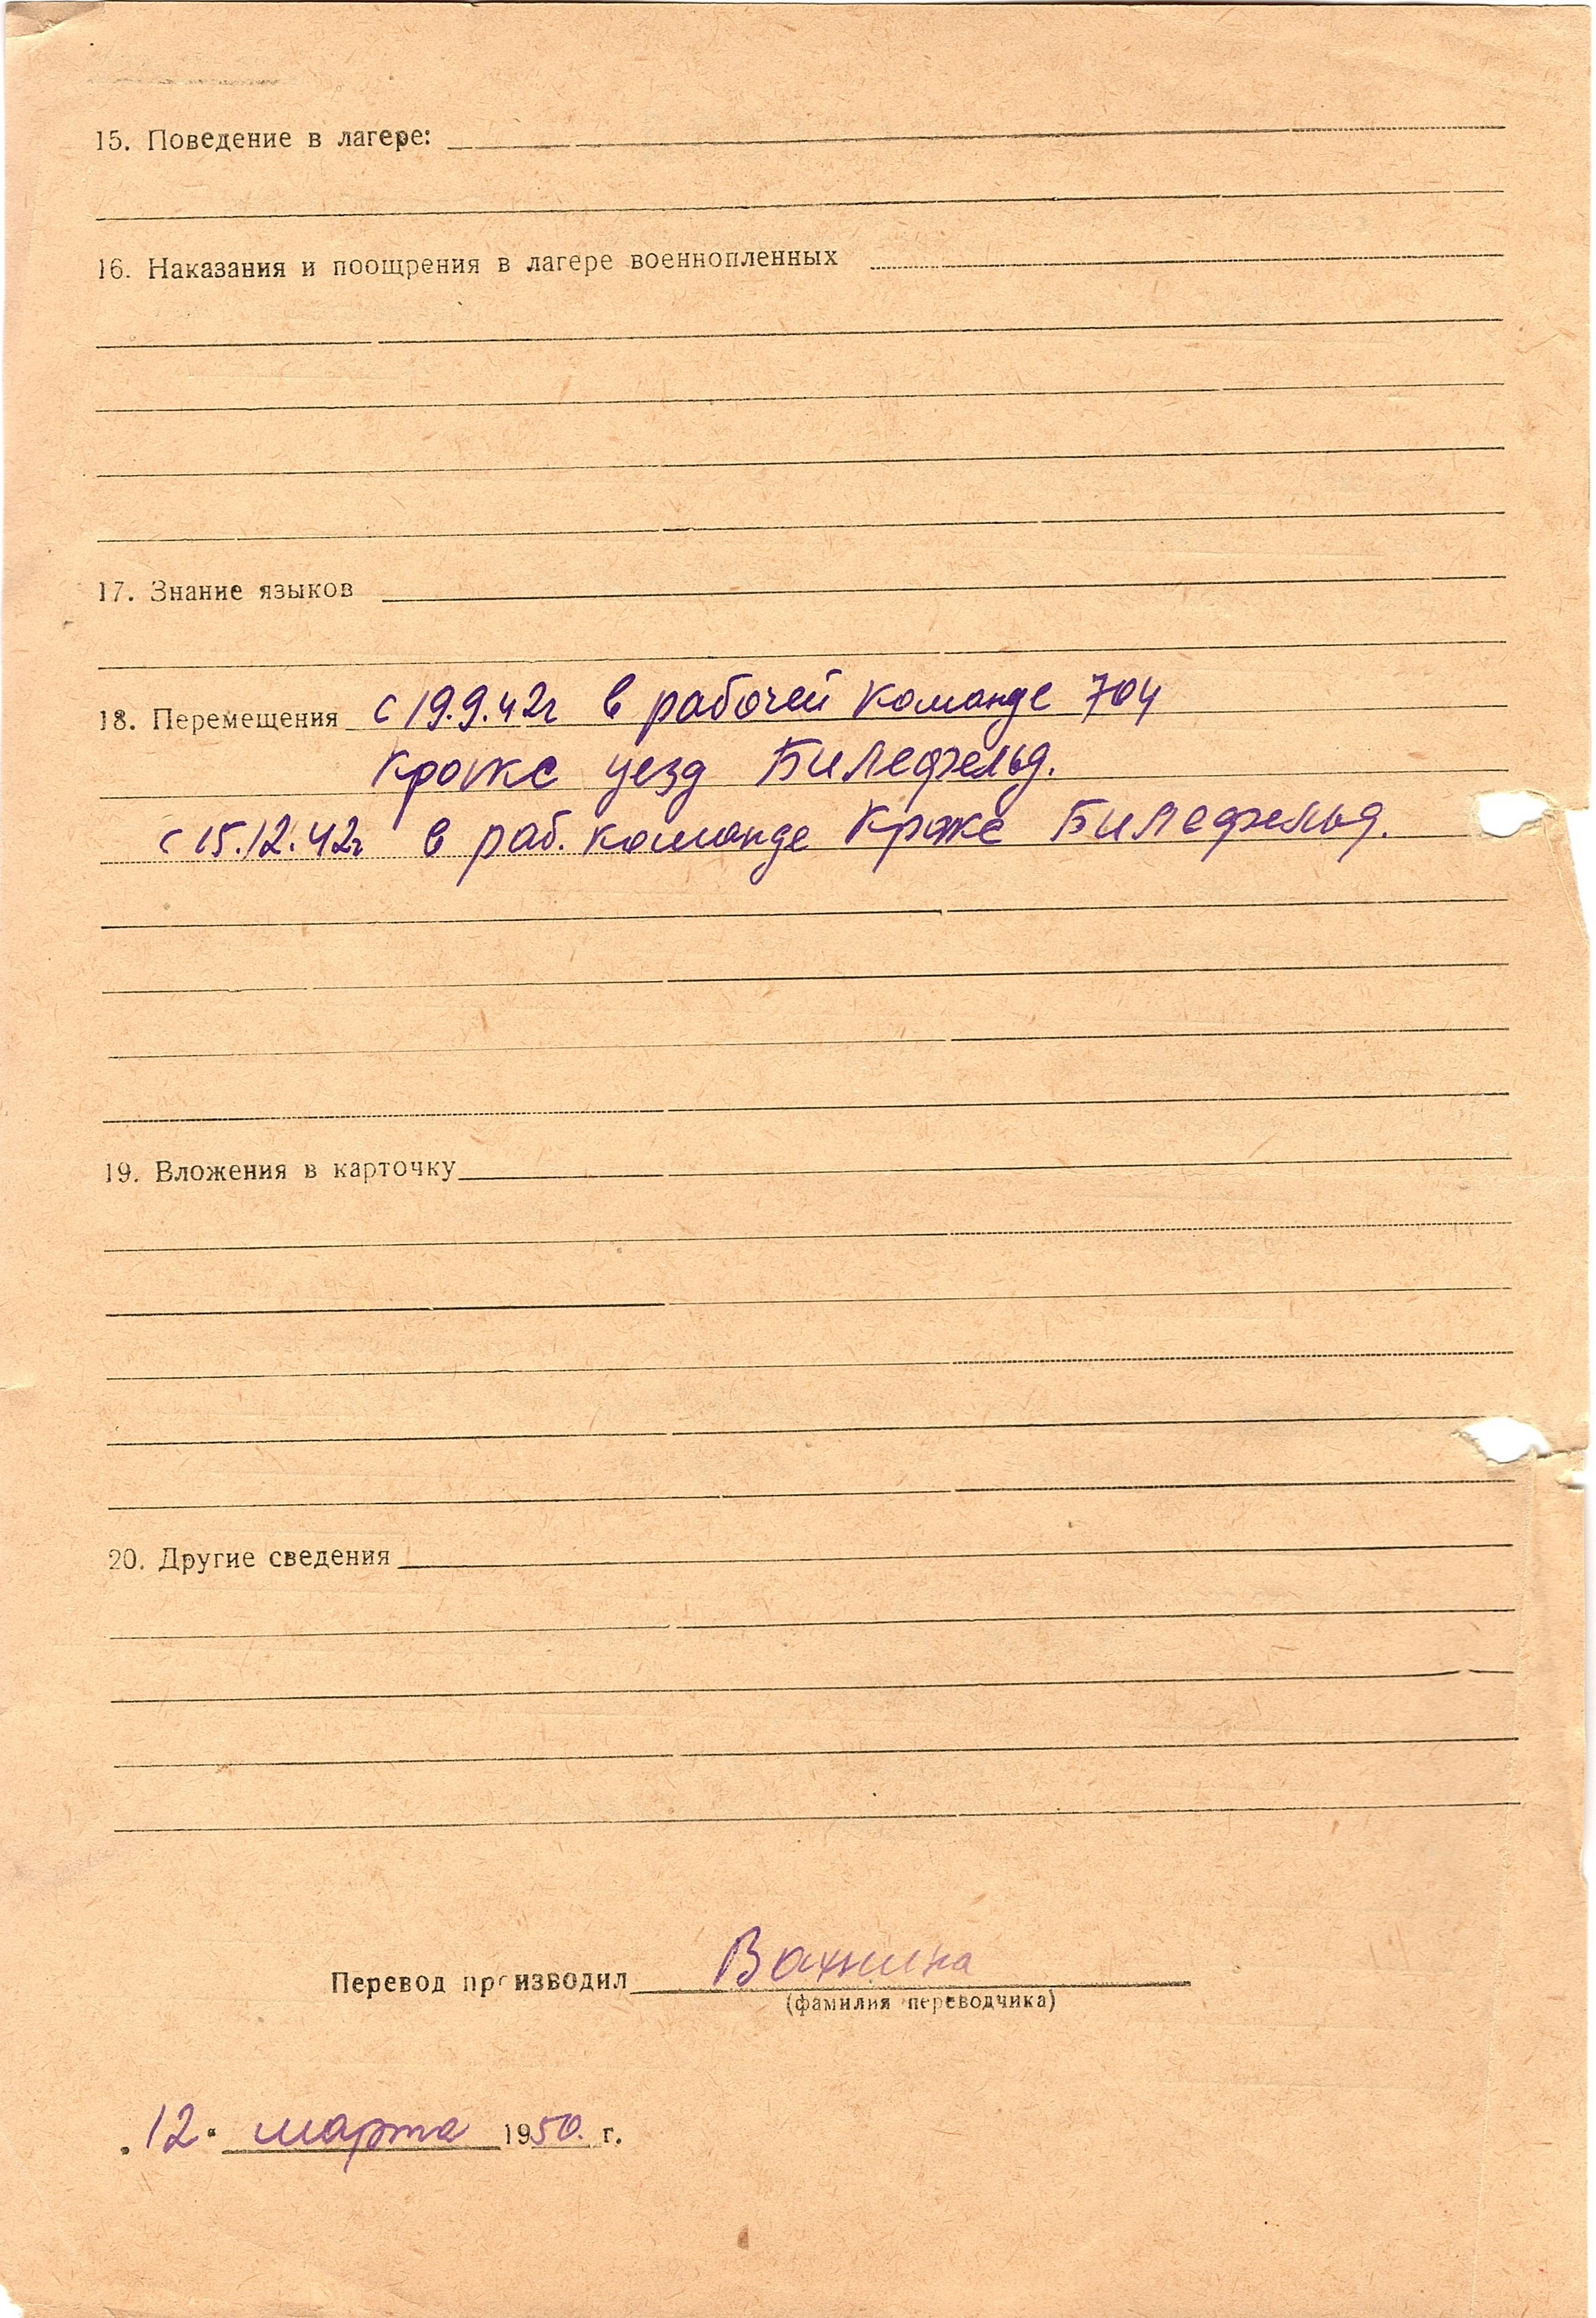 15. Поведение в лагере:
16. Наказания и поощрения в лагере военнопленных
17. Знание языков
18. Перемещения с 19.9.42г в рабочей команде 704
уезд Билефельд.
с 15.12.42г в раб. команде Билефельд.
19. Вложения в карточку
20. Другие сведения
Перевод производил
(фамилия переводчика)
„12“ марта 1950. г.